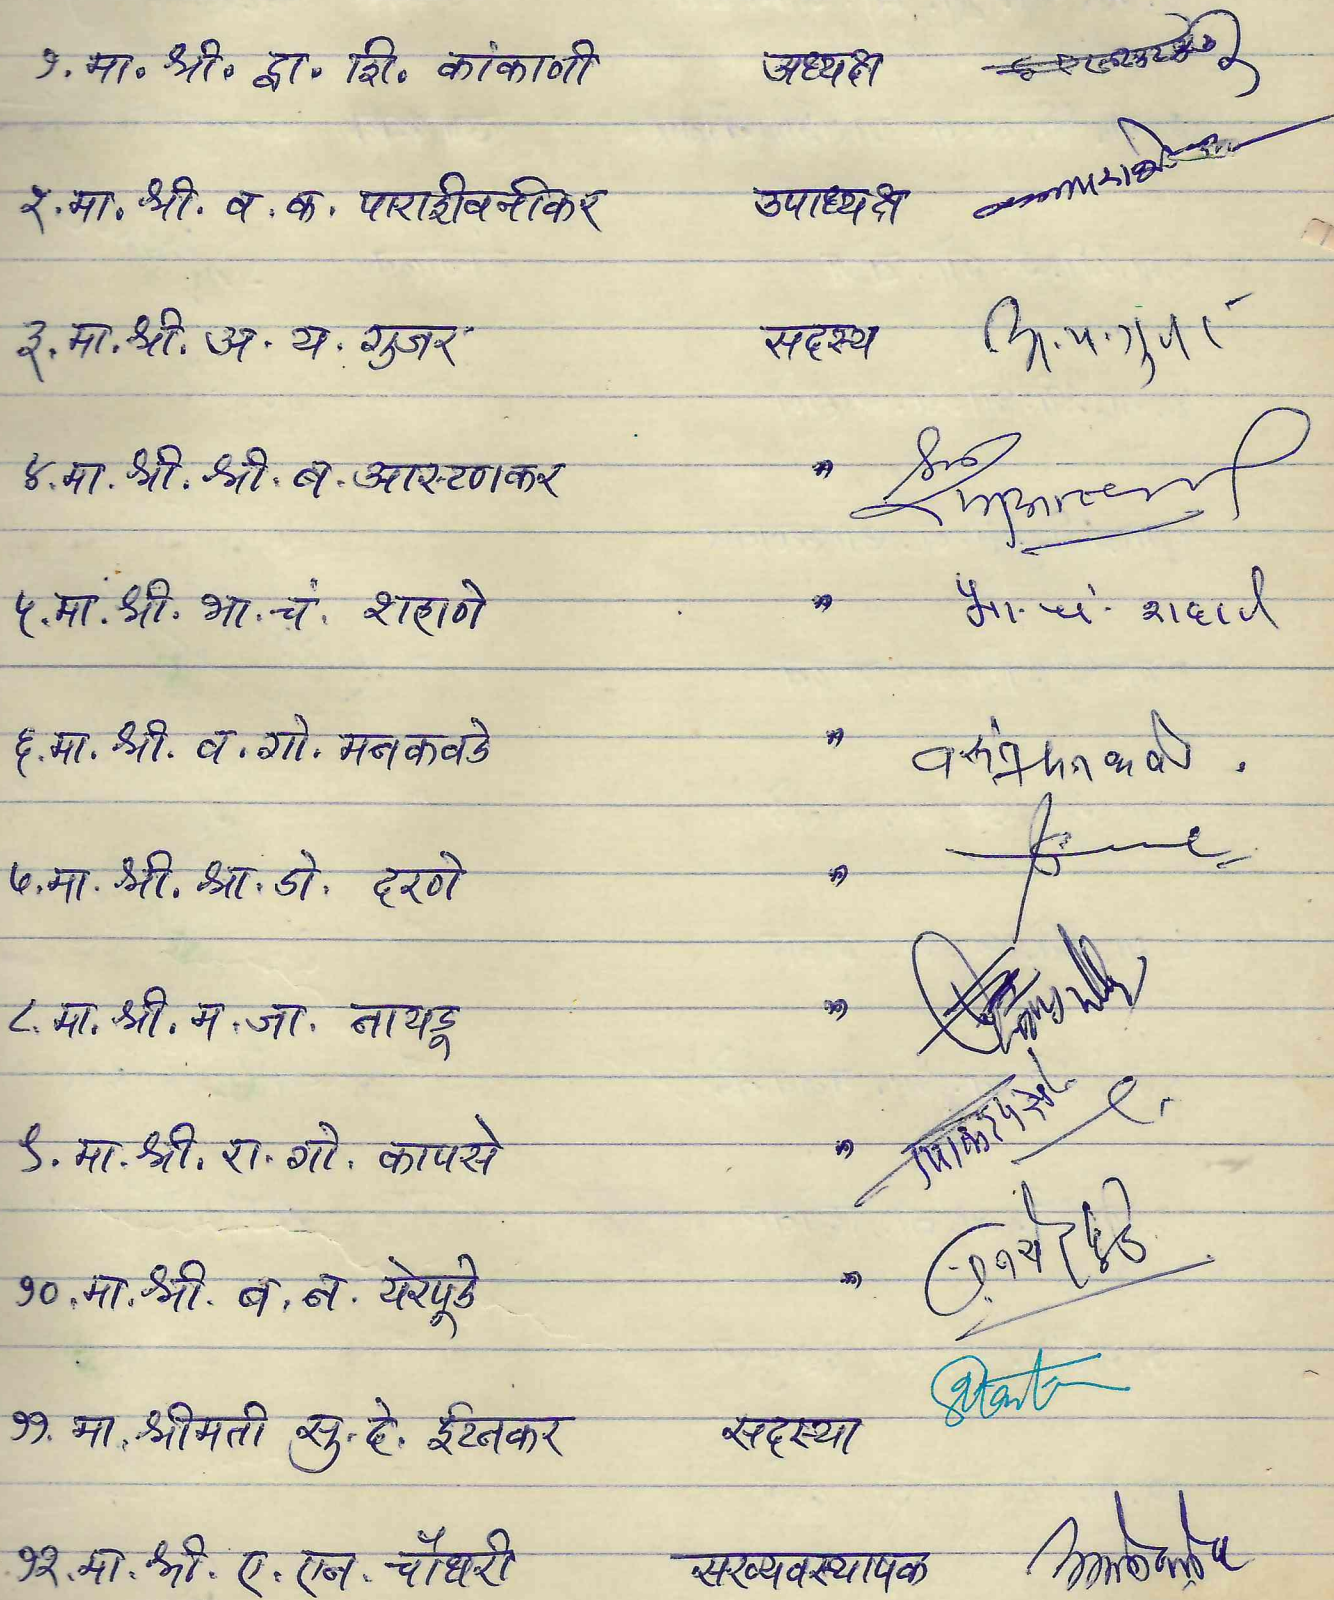 १. मा. श्री. द्वा. शि. कांकाणी अध्यक्ष
२. मा. श्री. व. क. पाराशीवनीकर उपाध्यक्ष
३. मा. श्री. अ. य. गुजर सदस्य अ. य. गुजर
४. मा. श्री. श्री. ब. आस्टणकर "
५. मा. श्री. भा. चं. शहाणे " भा. चं. शहाणे
६. मा. श्री. व. गो. मनकवडे "
७. मा. श्री. श्रा. डो. दरणे "
८. मा. श्री. म. जा. नायडू "
९. मा. श्री. रा. गो. कापसे "
१०. मा. श्री. ब. न. येरपूडे "
११. मा. श्रीमती सु. दे. ईटनकर सदस्या
१२. मा. श्री. ए. एन. चौधरी सरव्यवस्थापक